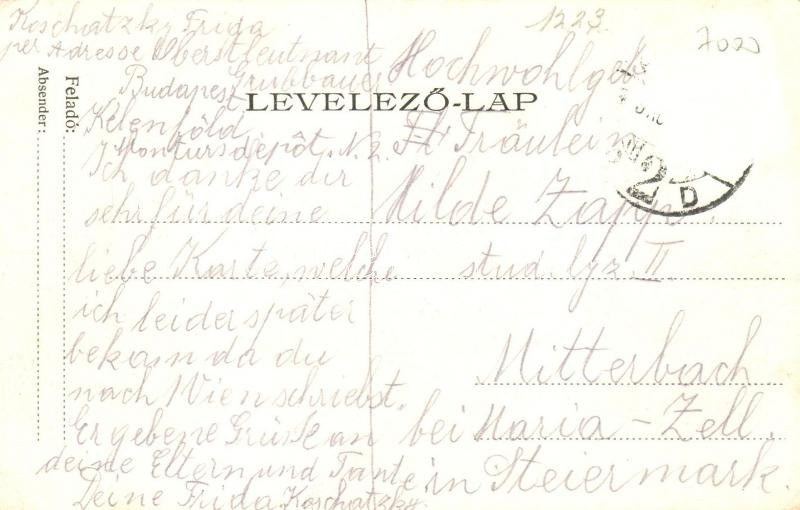 Koschatzky Frida
per Adresse Oberstleutnant
Grubbauer
Budapest
Kelenföld
Montursdepôt. N. 2.
Ich danke dir
sehr für deine
liebe Karte, welche
ich leider später
bekam da du
nach Wien schriebst.
Ergebene Grüsse an
deine Eltern und Tante
Deine Frida Koschatzky
1223
7020
LEVELEZŐ-LAP
Feladó:
Absender:
Hochwohlgeb
Fräulein
Hilde Zapp
stud. lyz. II.
Mitterbach
bei Maria-Zell.
in Steiermark.
2 D